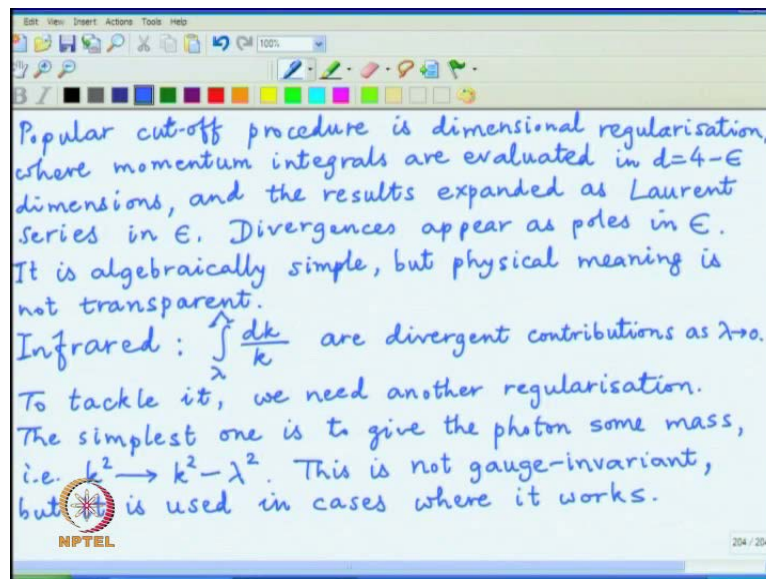 Edit View Insert Actions Tools Help
100%
B I
Popular cut-off procedure is dimensional regularisation,
where momentum integrals are evaluated in d=4-ϵ
dimensions, and the results expanded as Laurent
series in ϵ. Divergences appear as poles in ϵ.
It is algebraically simple, but physical meaning is
not transparent.
Infrared : ∫_λ^Λ dk/k are divergent contributions as λ→0.
To tackle it, we need another regularisation.
The simplest one is to give the photon some mass,
i.e. k² → k² - λ². This is not gauge-invariant,
but it is used in cases where it works.
NPTEL
204 / 204